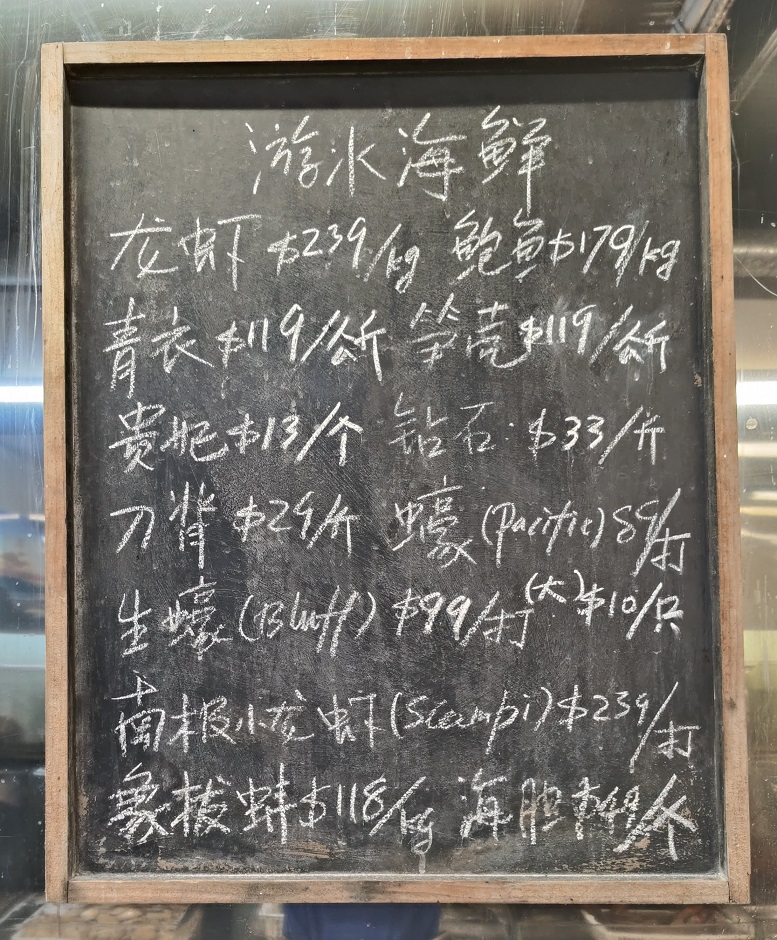 游水海鲜
龙虾 $239/kg 鲍鱼 $179/kg
青衣 $119/公斤 笋壳 $119/公斤
贵妃 $13/个 钻石 $33/斤
刀背 $29/斤 蠔 (Pacific) 89/打
生蠔 (Bluff) $99/打 (大) $10/只
南极小龙虾 (Scampi) $239/打
象拔蚌 $118/kg 海胆 $49/个